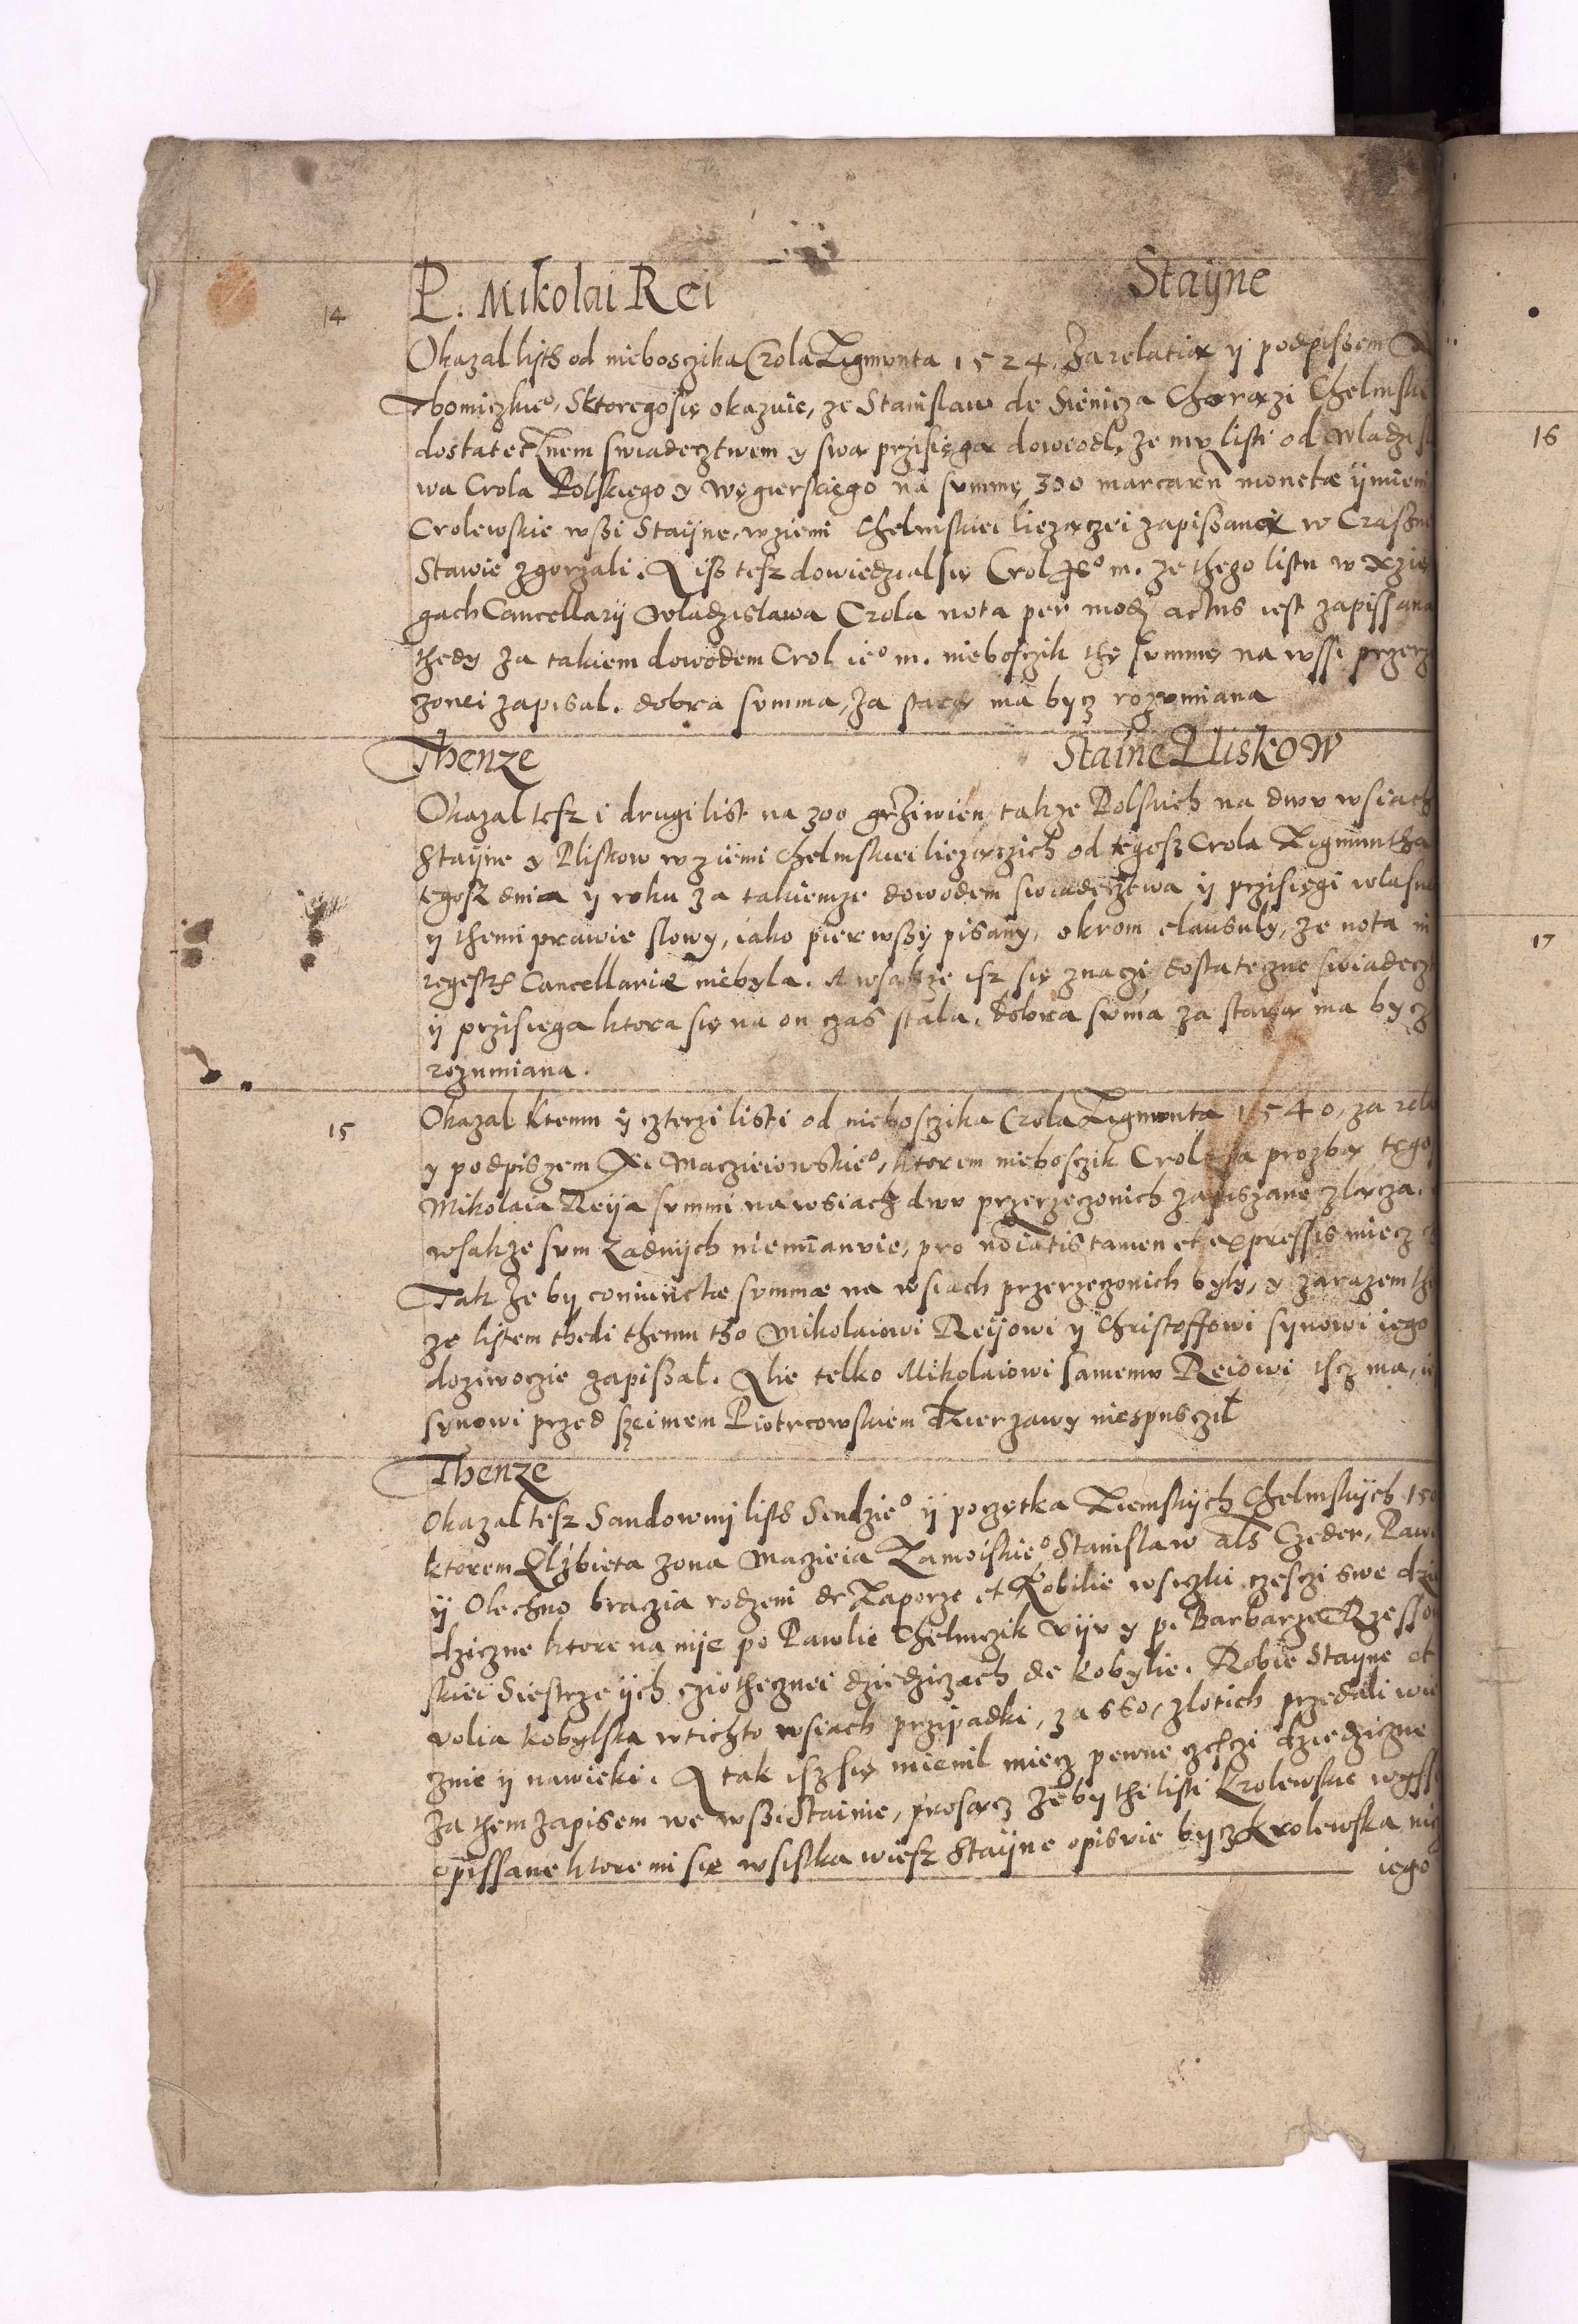 P. Mikolai Rei Stayne
14
Okazal listh od nieboszika Crola Zigmonta 1524. Za relatią y podpissem
Thomiczkieo, Sktorego się okazuie, ze Stanislaw de Sienicza Chorązi Chelmski
dostatecznem swiadecztwem y swą przisięgą dowiodl, ze mv listi od Wladzis
wa Crola Polskiego y Węgierskiego na summę 300 marcarum monetæ y imieni
Crolewskie wssi Stayne, w ziemi Chelmskiei liezączei zapissanei w Crassne
Stawie zgorzali. A iss tesz dowiedzial się Crol Jeo m. ze thego listu w Xzię
gach Cancellarij Wladzislawa Crola nota per modum actus iest zapissana
thedy za takiem dowodem Crol ieo m. nieboszik thę summę na wssi przerze
zonei zapisal. dobra summa, za starą ma bycz rozumiana
Thenze Staine Pliskow
Okazal tesz i drugi list na 300 grziwien takze Polskich na dwu wsiach
Stayne y Pliskow w ziemi Chelmskiei liezączich od tegosz Crola Zigmuntha
tegosz dnia y roku za takiemze dowodem swiadecztwa y przisięgi wlasne
y themi prawie slowy, iako pierwssy pisany, okrom clausuly, ze nota in
regestris Cancellariæ niebyla. A wsakze isz się znaczi dostateczne swiadecz
y przisięga ktora się na on czas stala, dobra suma za starą ma bycz
rozumiana.
15
Okazal ktemu y czterzi listi od niebosczika Crola Zigmonta 1540, za rela
y podpiszem X. Macieiowskieo, ktorem niebosczik Crol na prozbą tegos
Mikolaia Reya summi na wsiach dwu przerzeczonich zapiszane zlącza.
wsakze sum zadnych niemianuie, pro nominatis tamen et expressis miecz
Tak ze by coniunctæ summæ na wsiach przerzeczonich były, y zarazem th
ze listem thedi themu tho Mikolaiowi Reyowi y Christoffowi synowi iego
doziwoczie zapissał. Alie telko Mikolaiowi samemu Reiowi iscz ma, ie
synowi przed sęeimem Piotrcowskiem dzierzawy niespuscził
Thenze
Okazal tesz Sandowny listh Sendzieo y poczętka Ziemskych Chelmskych 150
ktorem Elżbieta zona Macieia Zamoiskieo Stanislaw als Czeder, Pawe
y Olechno braczia rodzeni de Zaporze et Kobilie wsiczki częsczi swe dzie
dziczne ktore na nye po Pawlie Chelmczik uyu y p. Barbarze Rzesso
skiei Siestrze ych cziothecznei dziedziczach de Kobylie. Kobie Stayne et
volia Kobylska w tichto wsiach przipadki, za 660, zlotich przedali wie
cznie y nawieki. A tak isz się mienil miecz pewne czesczi dziedziczne
za them zapisem we wssi Stainie, prosącz żeby thi listi Krolewskie
opissane ktoremi się wsistka wiesz Stayne opisuie bycz Krolewska nie
iego
16
17